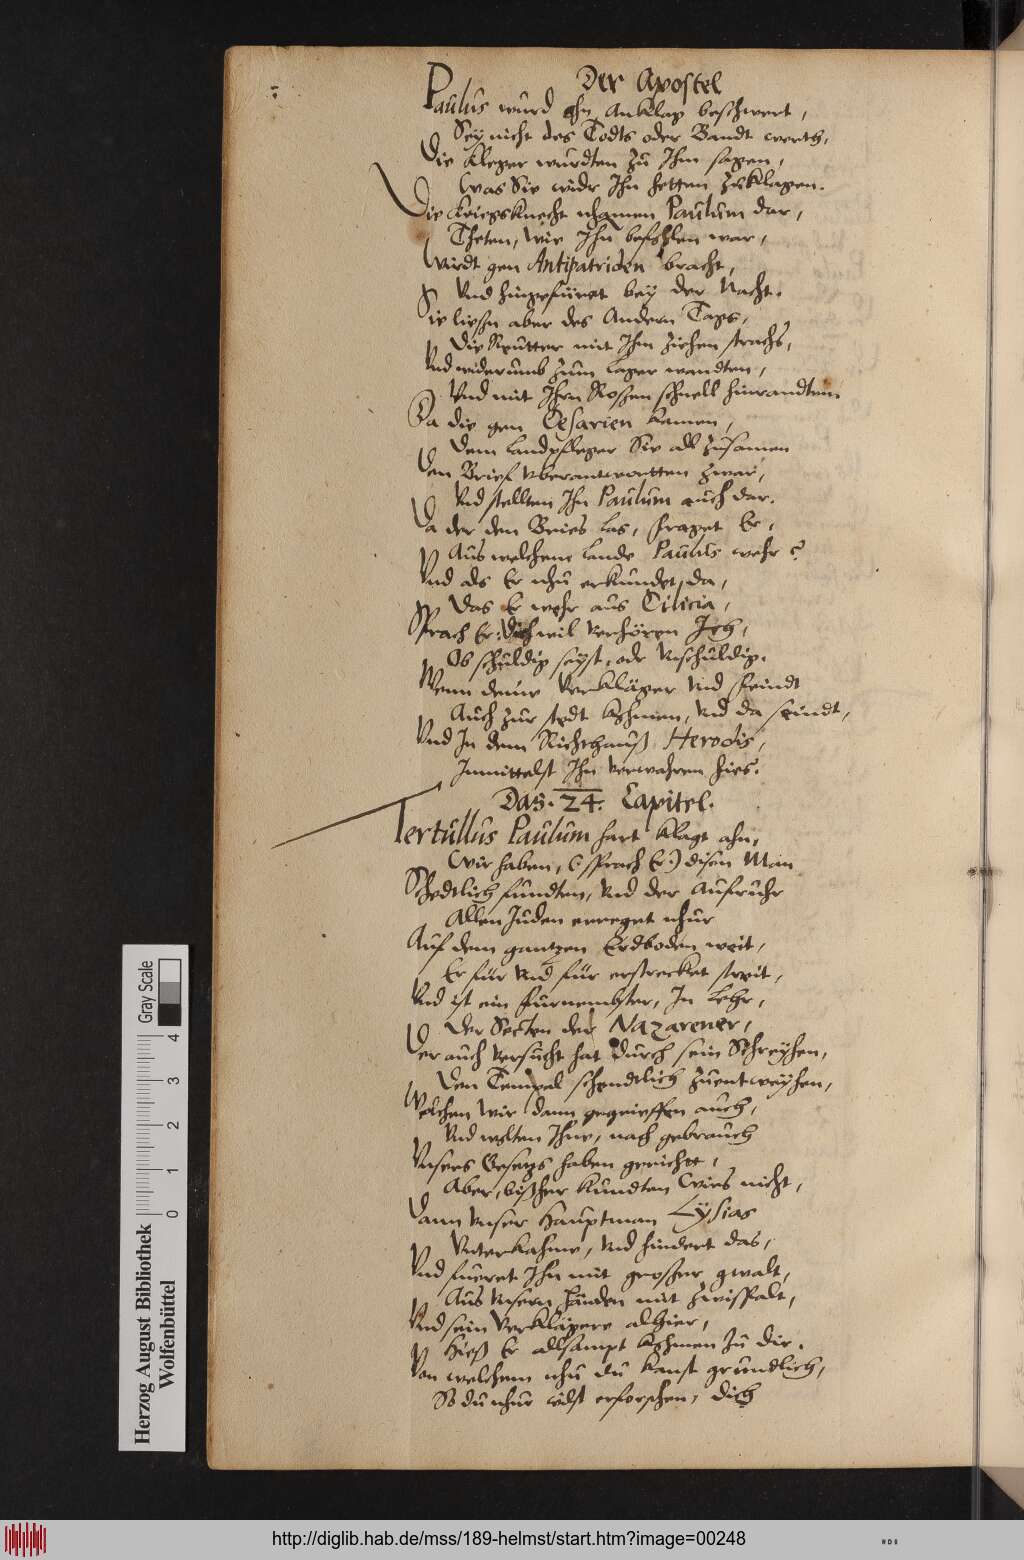 Der Apostel
Paulus wurd ohn Anklag beschwert,
Sey nicht des Todts oder Bandt werth,
Die Kleger wurdten zu Ihm sagen,
Was Sie widr Ihn hetten zuklagen.
Die Kriegsknecht nhamen Paulum dar,
Theten, wie Ihn befohlen war,
Wirdt gen Antipatriden bracht,
Vnd hingefüret bey der Nacht.
Sie liesn aber des Andern Tags,
Die Reutter mit Ihm ziehen strachs,
Vnd widerumb zum Lager wandten,
Vnd mit Ihrn Rossen schnell hinrandten
Da die gen Cesarien kamen,
Dem Landpfleger Sie all zusamen
Den Brief vberantwortten zwar,
Vnd stellten Ihn Paulum auch dar.
Da der den Brief las, fraget Er,
Aus welchem Lande Paulus wehr?
Vnd als Er nhu erkundet, da,
Das Er wehr aus Cilicia,
Sprach Er: Dich wil verhören Ich,
Ob schuldig seyst, odr vnschuldig.
Wenn deine Verkläger vnd feindt
Auch zur stedt kohmen, vnd da seindt,
Vnd In dem Richthauß Herodis,
Inmittelst Ihn verwahren hies.
Das. 24. Capitel.
Tertullus Paulum hart klagt ahn,
Wir haben, (sprach Er) disen Man
Schedtlich fundten, vnd der Aufruhr
Allen Juden erreget nhur
Auf dem gantzen Erdboden weit,
Er für vnd für erstrecket streit,
Vnd ist ein furnembster, In Lehr,
Der Secten der Nazarener,
Der auch versucht hat durch sein Schreyhen,
Den Tempel schendtlich zuentweyhen,
Welchen wir dann gegrieffen auch,
Vnd wolten Ihne, nach gebrauch
Vnsers Gesetzs haben gericht,
Aber, bißher kundten wirs nicht,
Dann vnser Hauptman Lysias
Vnterkahme, vnd hindert das,
Vnd fueret Ihn mit grosser gwalt,
Aus vnsern Händen mit zwispalt,
Vnd sein Verklägere alhier,
Hieß Er allsampt kohmen zu dir.
Von welchem nhu du kanst grundlich,
So du nhur wilst erforschen, dich
Gray Scale
0 1 2 3 4
Herzog August Bibliothek
Wolfenbüttel
http://diglib.hab.de/mss/189-helmst/start.htm?image=00248